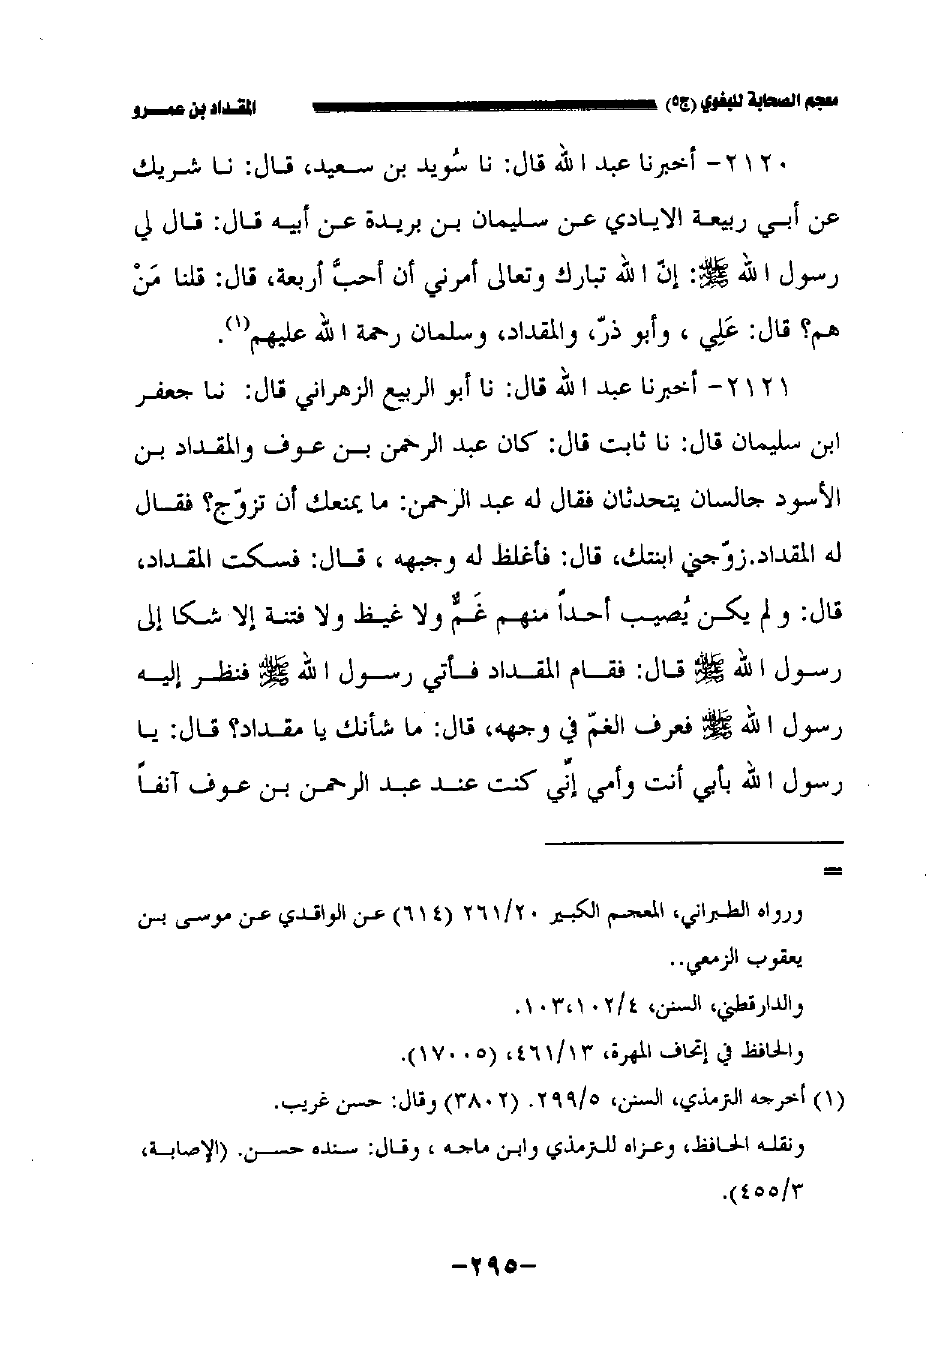 معجم الصحابة للبغوي (ج٥) المقداد بن عمرو
٢١٢٠- أخبرنا عبد الله قال: نا سُويد بن سعيد، قال: نا شريك
عن أبي ربيعة الايادي عن سليمان بن بريدة عن أبيه قال: قال لي
رسول الله ﷺ: إنّ الله تبارك وتعالى أمرني أن أحبَّ أربعة، قال: قلنا مَنْ
هم؟ قال: عَلِي ، وأبو ذرّ، والمقداد، وسلمان رحمة الله عليهم(١).
٢١٢١- أخبرنا عبد الله قال: نا أبو الربيع الزهراني قال: نا جعفر
ابن سليمان قال: نا ثابت قال: كان عبد الرحمن بن عوف والمقداد بن
الأسود جالسان يتحدثان فقال له عبد الرحمن: ما يمنعك أن تزوّج؟ فقال
له المقداد.زوّجني ابنتك، قال: فأغلظ له وجبهه ، قال: فسكت المقداد،
قال: و لم يكن يُصيب أحداً منهم غَمٌّ ولا غيظ ولا فتنة إلا شكا إلى
رسول الله ﷺ قال: فقام المقداد فأتي رسول الله ﷺ فنظر إليه
رسول الله ﷺ فعرف الغمّ في وجهه، قال: ما شأنك يا مقداد؟ قال: يا
رسول الله بأبي أنت وأمي إنّي كنت عند عبد الرحمن بن عوف آنفاً
=
ورواه الطبراني، المعجم الكبير ٢٦١/٢٠ (٦١٤) عن الواقدي عن موسى بن
يعقوب الزمعي..
والدارقطني، السنن، ١٠٣،١٠٢/٤.
والحافظ في إتحاف المهرة، ٤٦١/١٣، (١٧٠٠٥).
(١) أخرجه الترمذي، السنن، ٢٩٩/٥. (٣٨٠٢) وقال: حسن غريب.
ونقله الحافظ، وعزاه للترمذي وابن ماجه ، وقال: سنده حسن. (الإصابة،
٤٥٥/٣).
-٢٩٥-